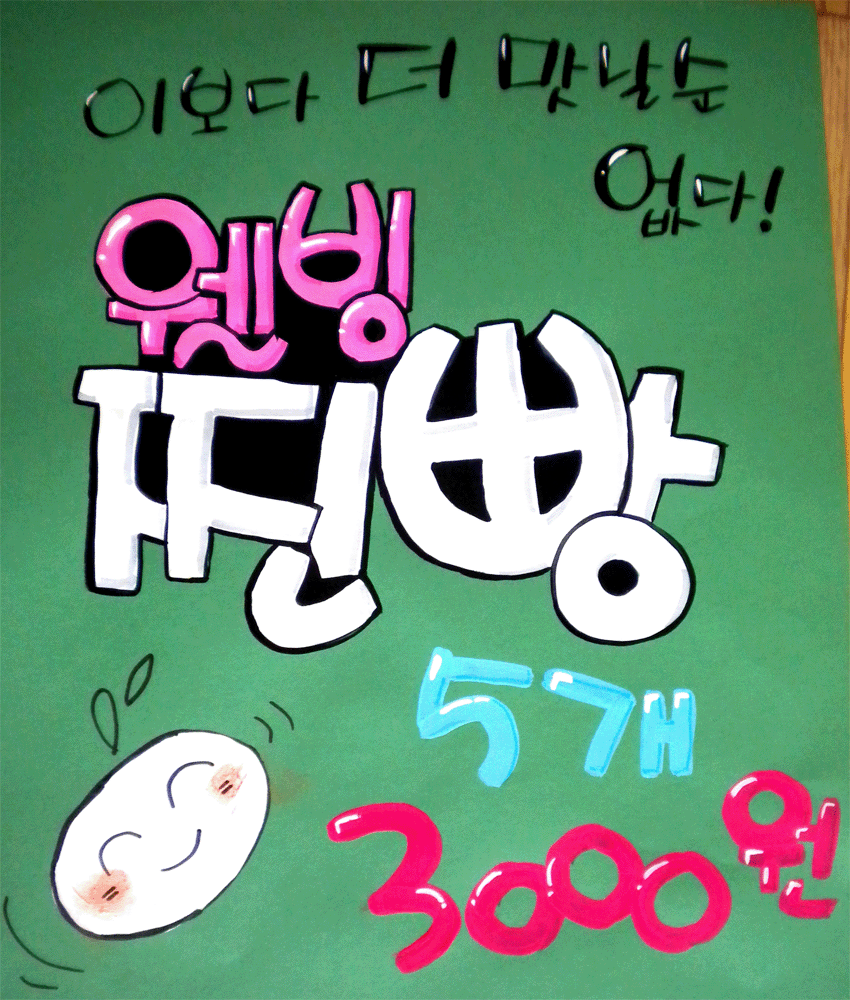 이보다 더 맛날순
없다!
웰빙
찐빵
5개
3000원